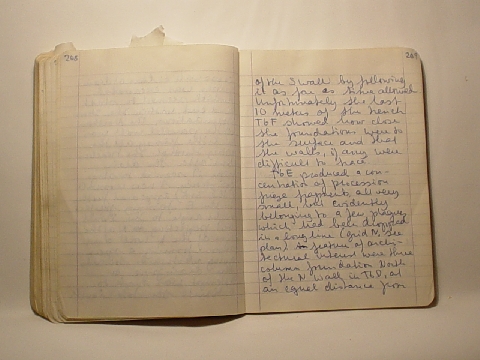 268
269
of the S wall by following
it as far as time allowed
Unfortunately the last
10 meters of the trench
T6F showed how close
the foundations were to
the surface and that
the walls, if any were
difficult to trace.
T6E produced a con-
centration of procession
frieze fragments all very
small, but evidently
belonging to a few plaques
which had been dropped
in a long line (grid N, see
plan) feature of archi-
tectural interest were three
column foundation North
of the N wall in T6D, at
an equal distance from